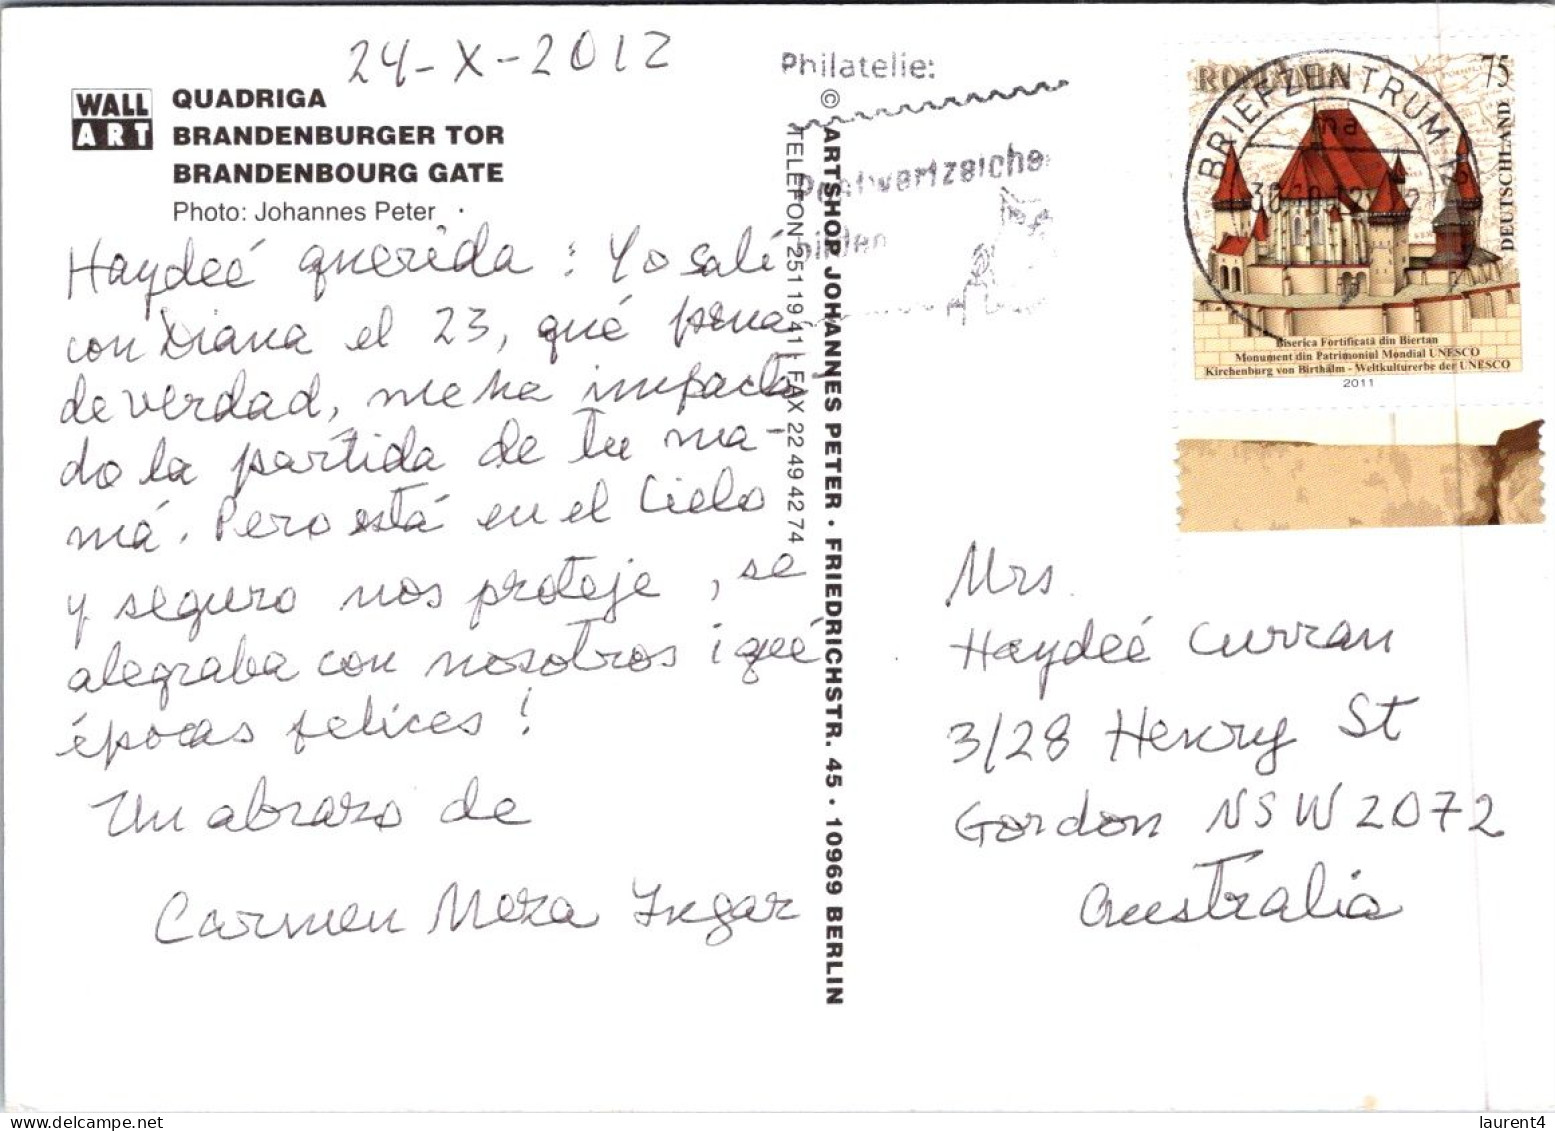 24-X-2012
WALL
ART
QUADRIGA
BRANDENBURGER TOR
BRANDENBOURG GATE
Photo: Johannes Peter
Haydeé querida: Yo salí
con Diana el 23, qué pena
de verdad, me ha impacta
do la partida de tu ma-
má. Pero está en el Cielo
y seguro nos proteje, se
alegraba con nosotros ¡qué
épocas felices!
Un abrazo de
Carmen Meza Ingar
© ARTSHOP JOHANNES PETER · FRIEDRICHSTR. 45 · 10969 BERLIN
TELEFON 251 19 41 | FAX 22 49 42 74
Philatelie:
Postwertzeiche
ROMANIA
75
DEUTSCHLAND
BRIEFZENTRUM 12
ma
30.10.12
Biserica Fortificată din Biertan
Monument din Patrimoniul Mondial UNESCO
Kirchenburg von Birthälm - Weltkulturerbe der UNESCO
2011
Mrs.
Haydeé Curran
3/28 Henry St
Gordon NSW 2072
Australia
laurent4